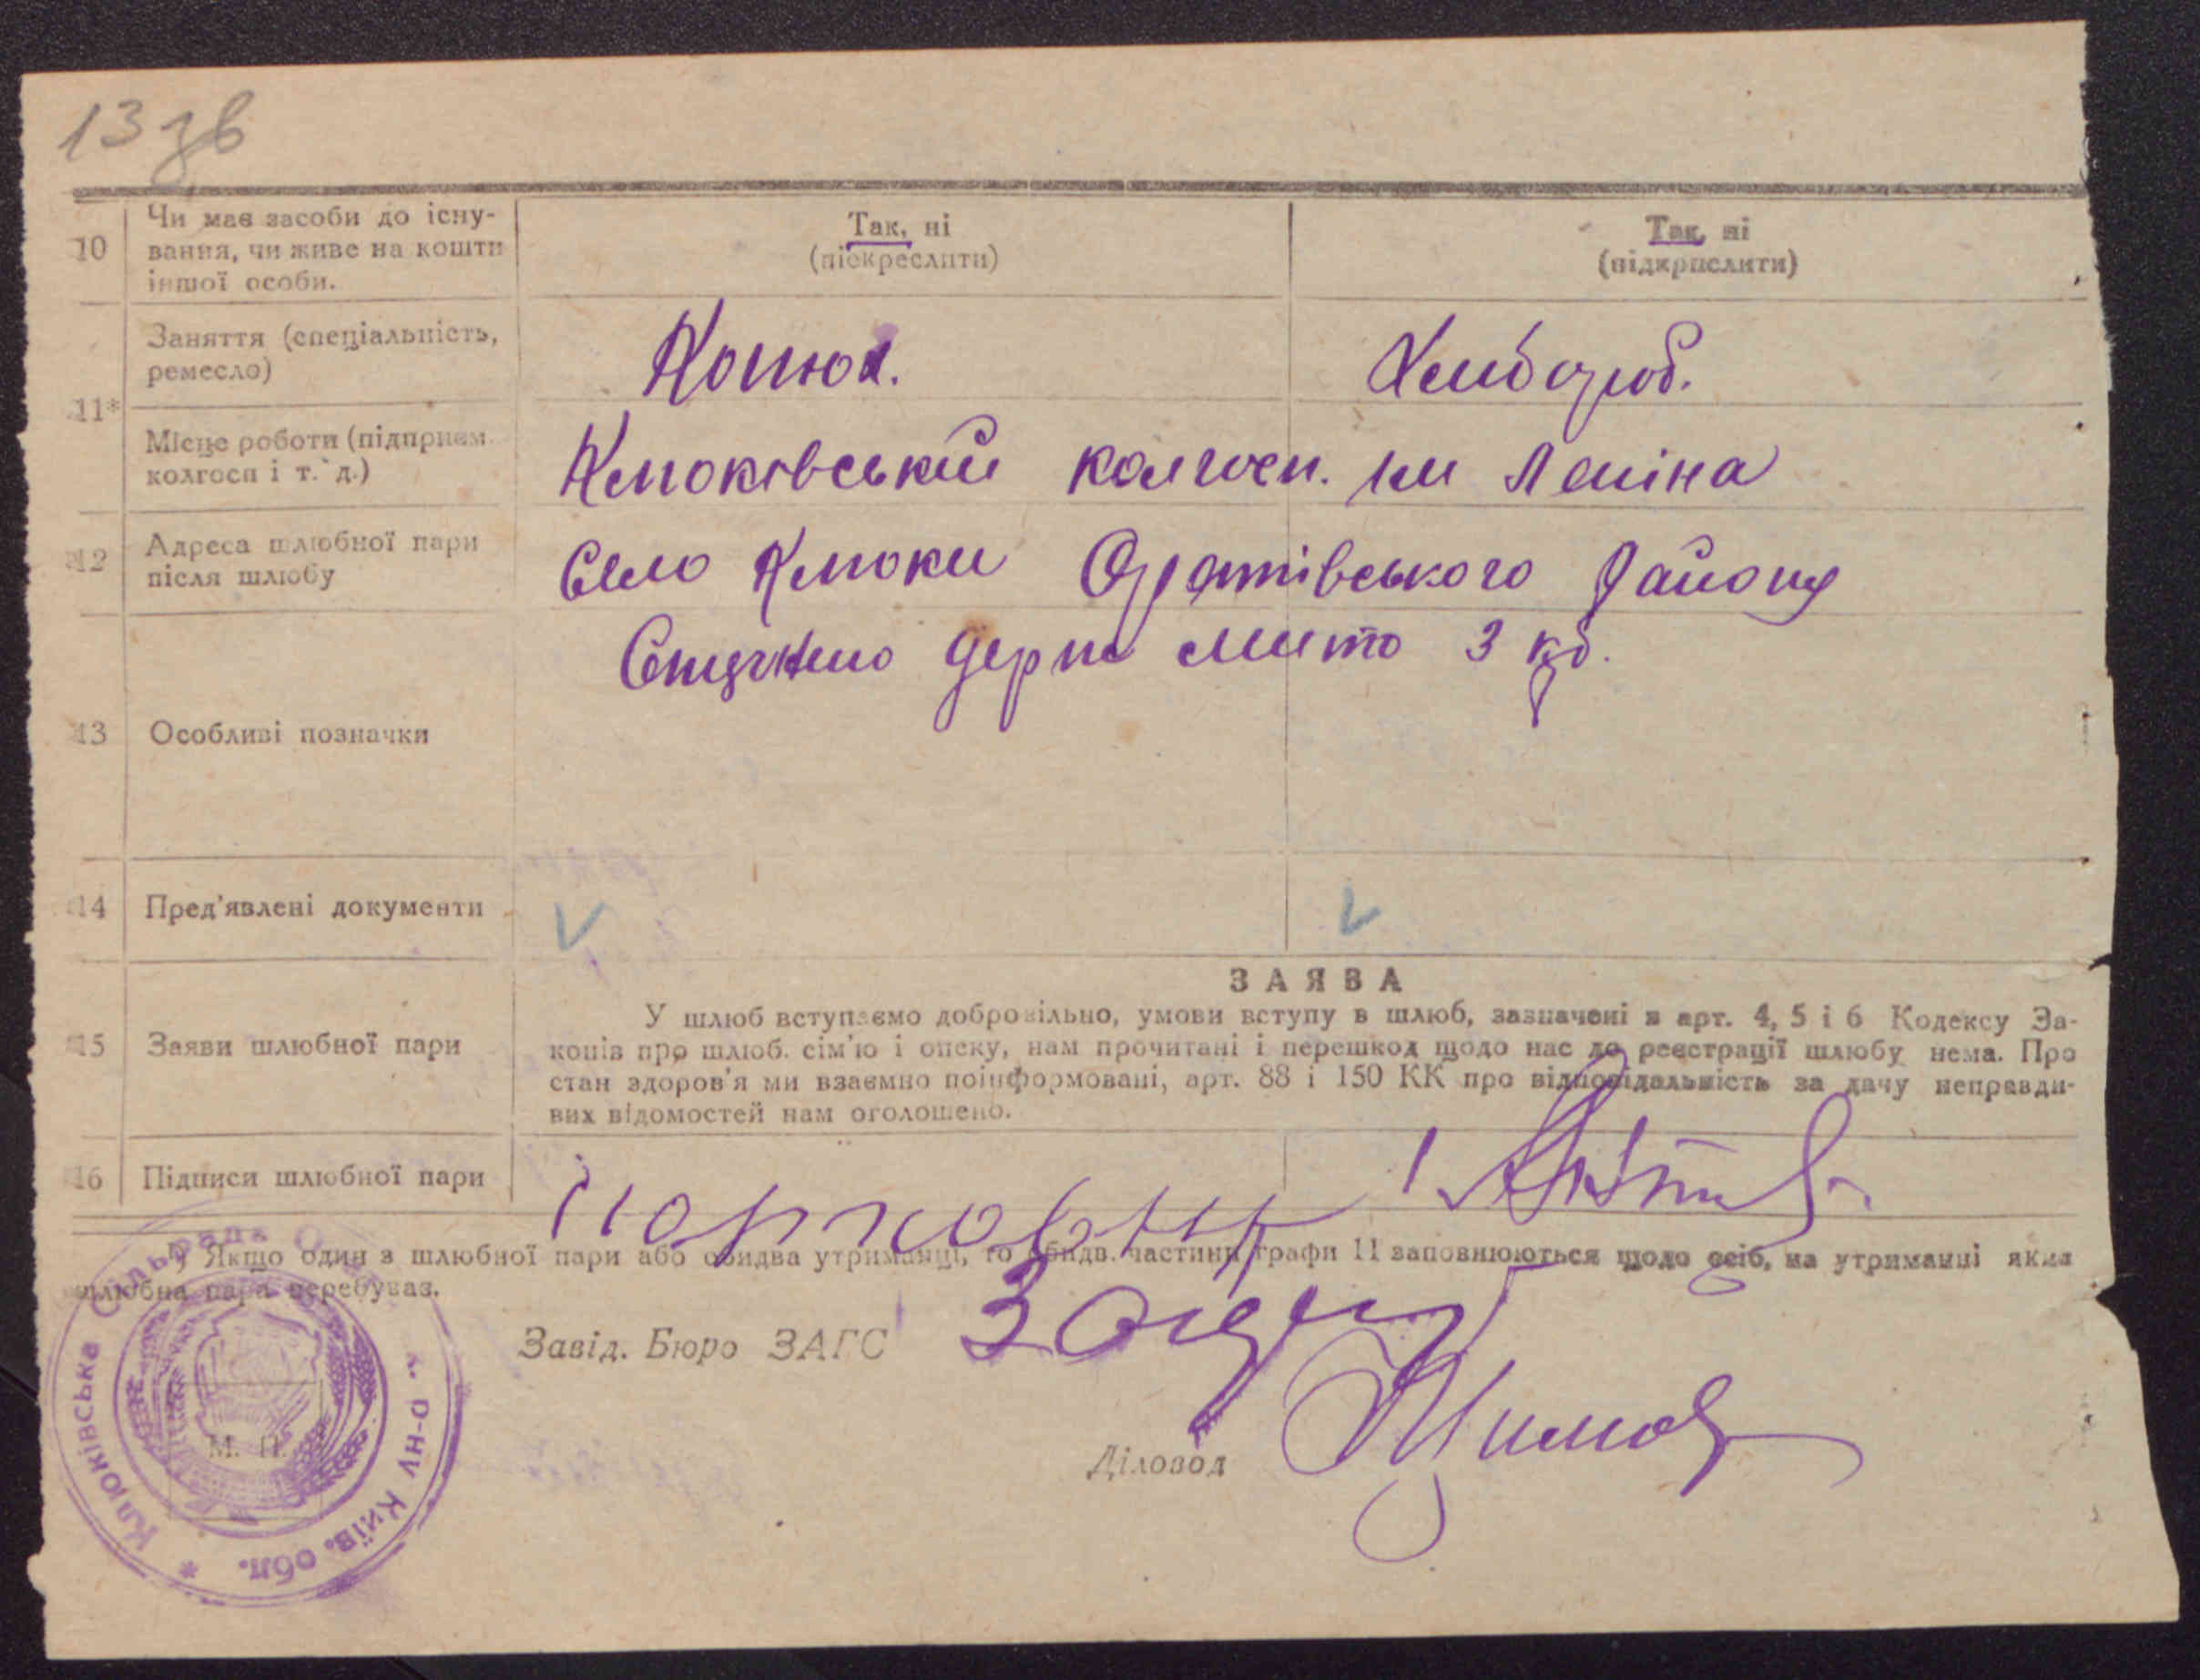 13 зв
10 Чи має засоби до існу-
вання, чи живе на кошти
іншої особи.
Так, ні
(підкреслити)
Так, ні
(підкрислити)
11*
Заняття (спеціальність,
ремесло)
Конюх.
Хлибороб.
Місце роботи (підприєм.
колгосп і т. д.)
Клюківський колгосп. им Леніна
12 Адреса шлюбної пари
після шлюбу
Село Клюки Оратівського Району
Стягнено держ мито 3 кб.
13 Особливі позначки
14 Пред'явлені документи
V V
ЗАЯВА
15 Заяви шлюбної пари
У шлюб вступаємо добровільно, умови вступу в шлюб, зазначені в арт. 4, 5 і 6 Кодексу За-
конів про шлюб. сім'ю і опеку, нам прочитані і перешкод щодо нас до реєстрації шлюбу нема. Про
стан здоров'я ми взаємно поінформовані, арт. 88 і 150 КК про відповідальність за дачу неправди-
вих відомостей нам оголошено.
16 Підписи шлюбної пари
*) Якщо один з шлюбної пари або обидва утриманці, то обидв. частини графи 11 заповнюються щодо осіб, на утриманні яких
шлюбна пара перебуває.
Завід. Бюро ЗАГС
Діловод
М. П.
Клюківська Сільрада
р-ну Київ. обл.